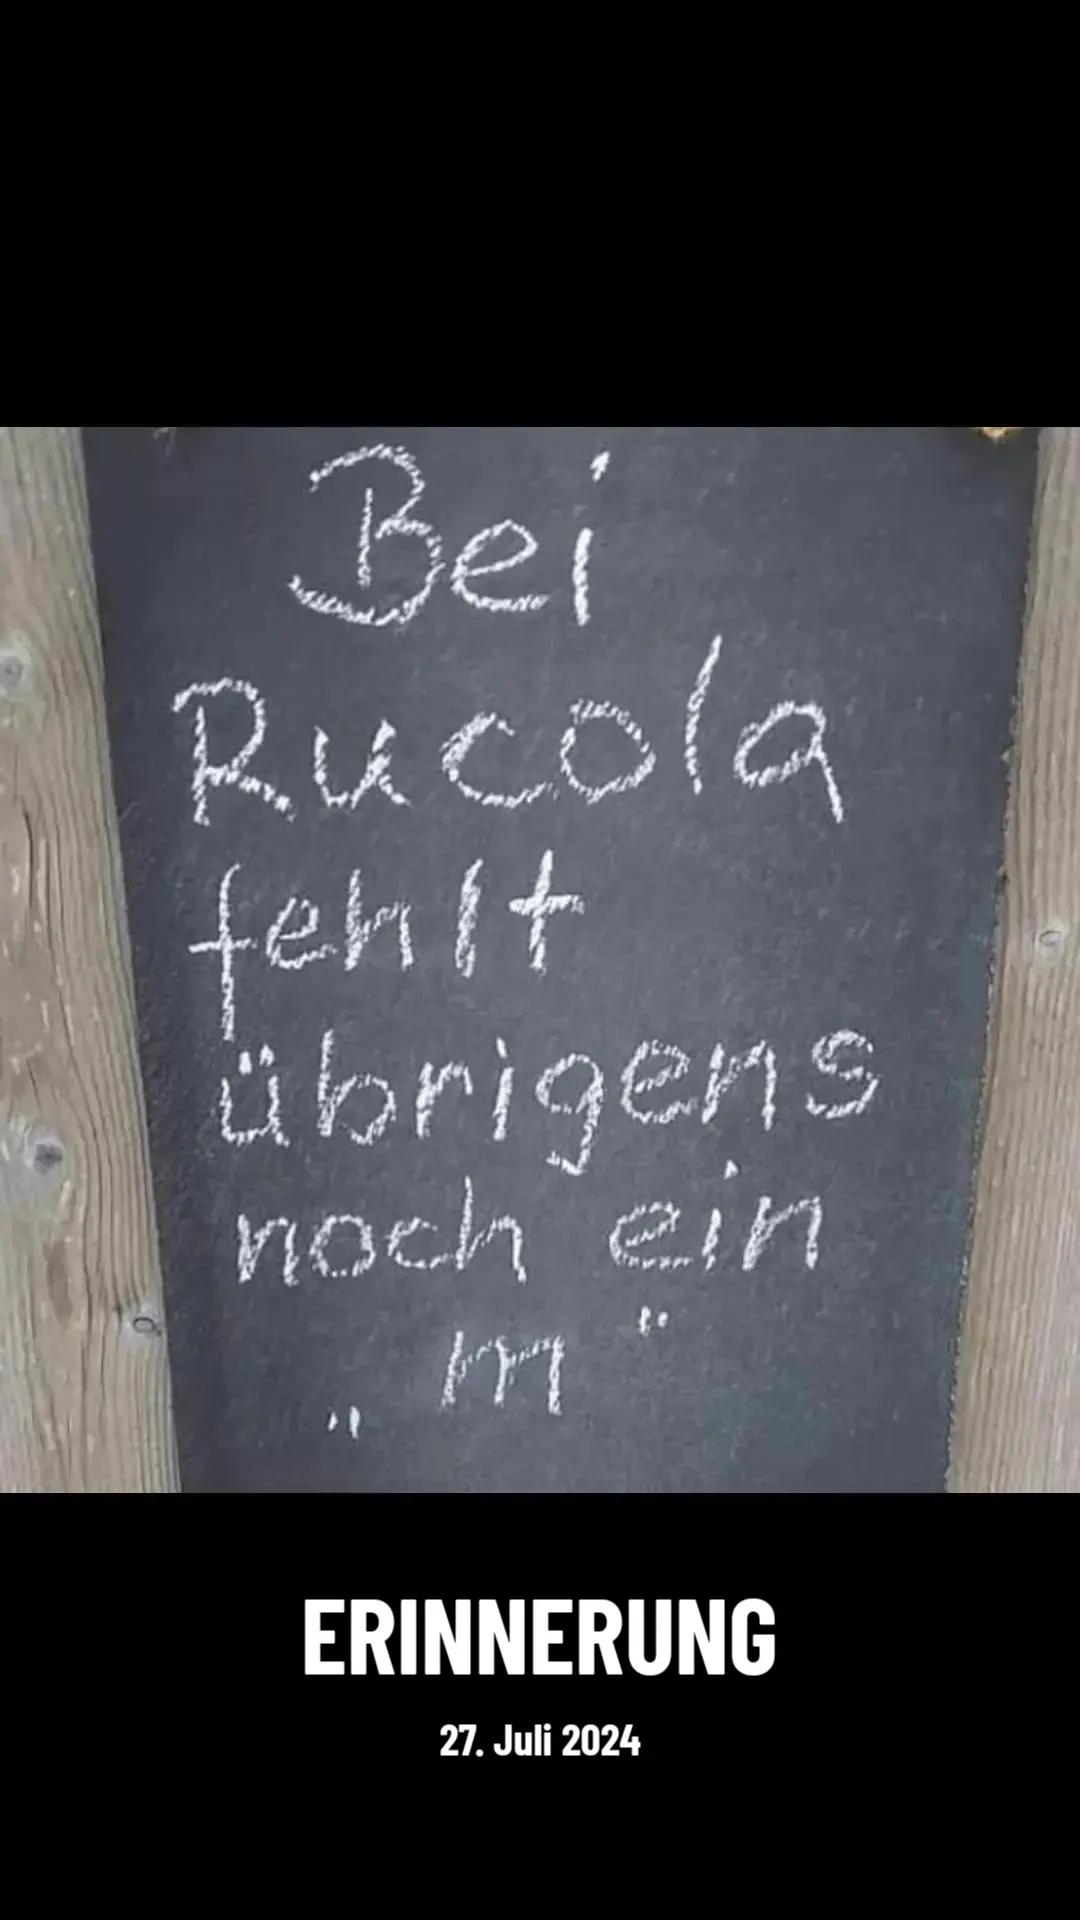 Bei
Rucola
fehlt
übrigens
noch ein
„m"
ERINNERUNG
27. Juli 2024